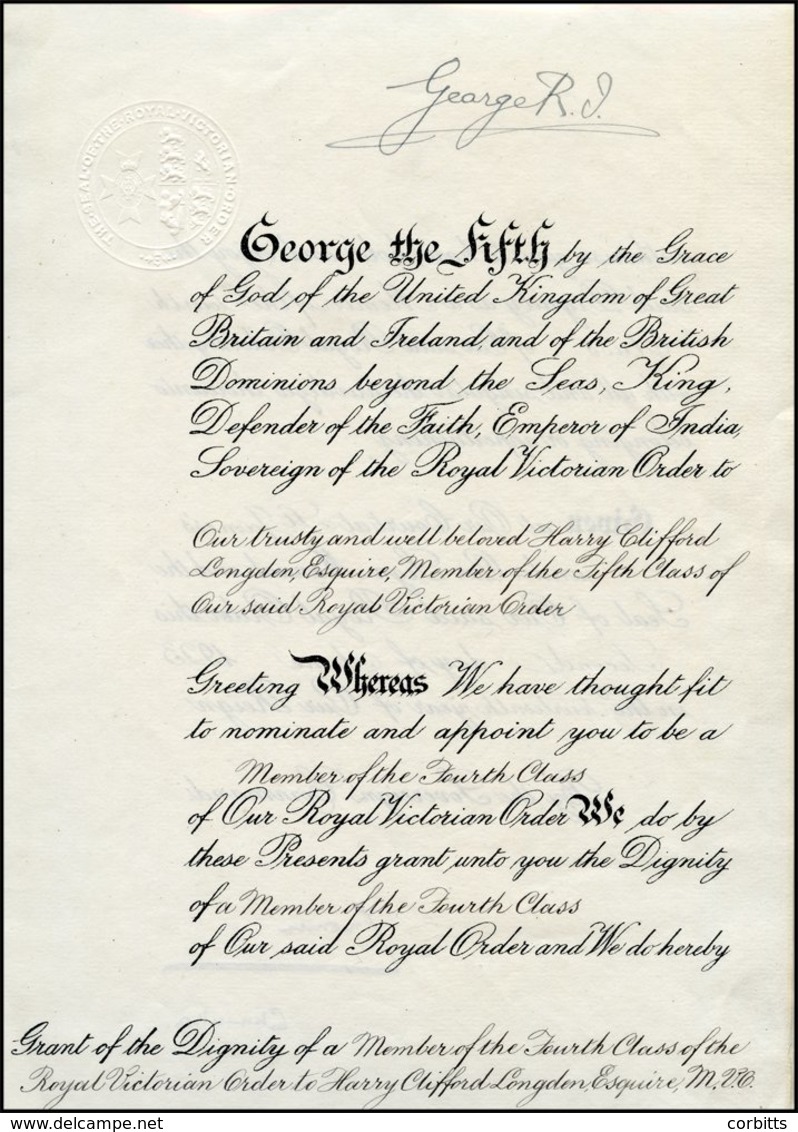 George R.I.
THE·SEAL·OF·THE·ROYAL·VICTORIAN·ORDER
George the Fifth by the Grace
of God, of the United Kingdom of Great
Britain and Ireland, and of the British
Dominions beyond the Seas, King,
Defender of the Faith, Emperor of India,
Sovereign of the Royal Victorian Order to
Our trusty and well beloved Harry Clifford
Longden, Esquire, Member of the Fifth Class of
Our said Royal Victorian Order
Greeting Whereas We have thought fit
to nominate and appoint you to be a
Member of the Fourth Class
of Our Royal Victorian Order We do by
these Presents grant unto you the Dignity
of a Member of the Fourth Class
of Our said Royal Order and We do hereby
Grant of the Dignity of a Member of the Fourth Class of the
Royal Victorian Order to Harry Clifford Longden, Esquire, M.V.O.
corbitts